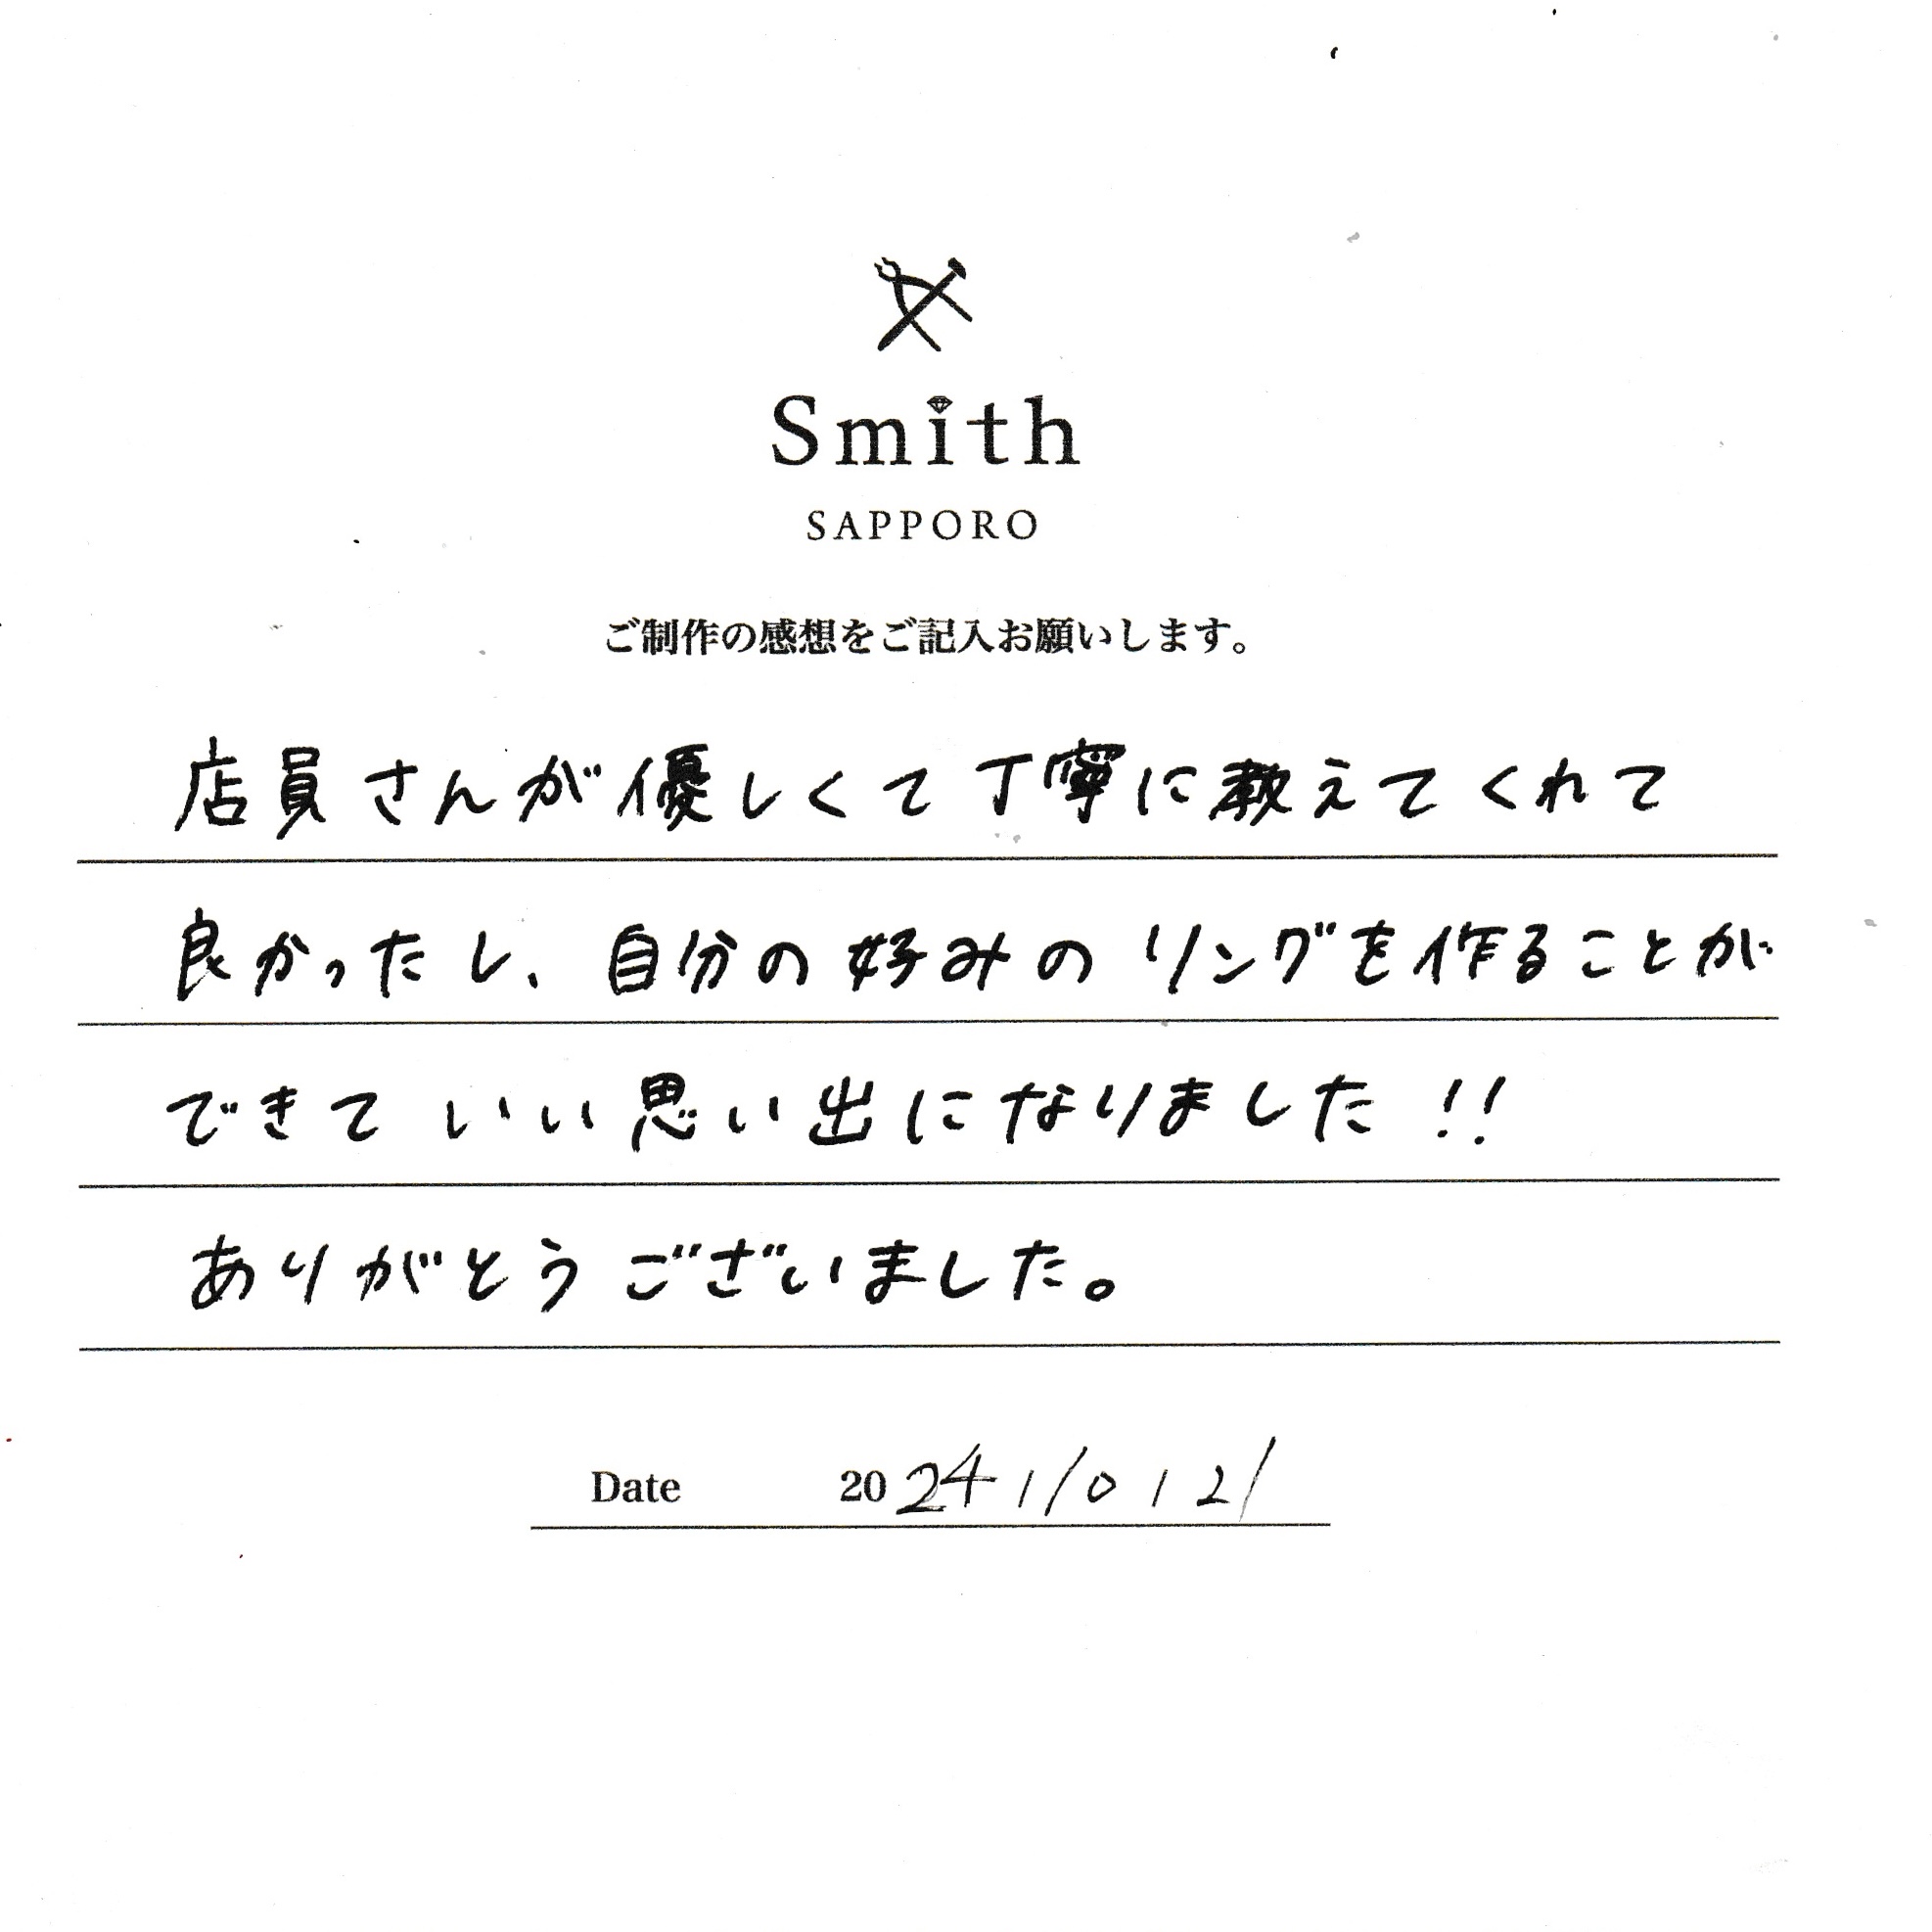 Smith
SAPPORO
ご制作の感想をご記入お願いします。
店員さんが優しくて丁寧に教えてくれて
良かったし、自分の好みのリングを作ることが
できていい思い出になりました!!
ありがとうございました。
Date 2024 1/0 1 2/